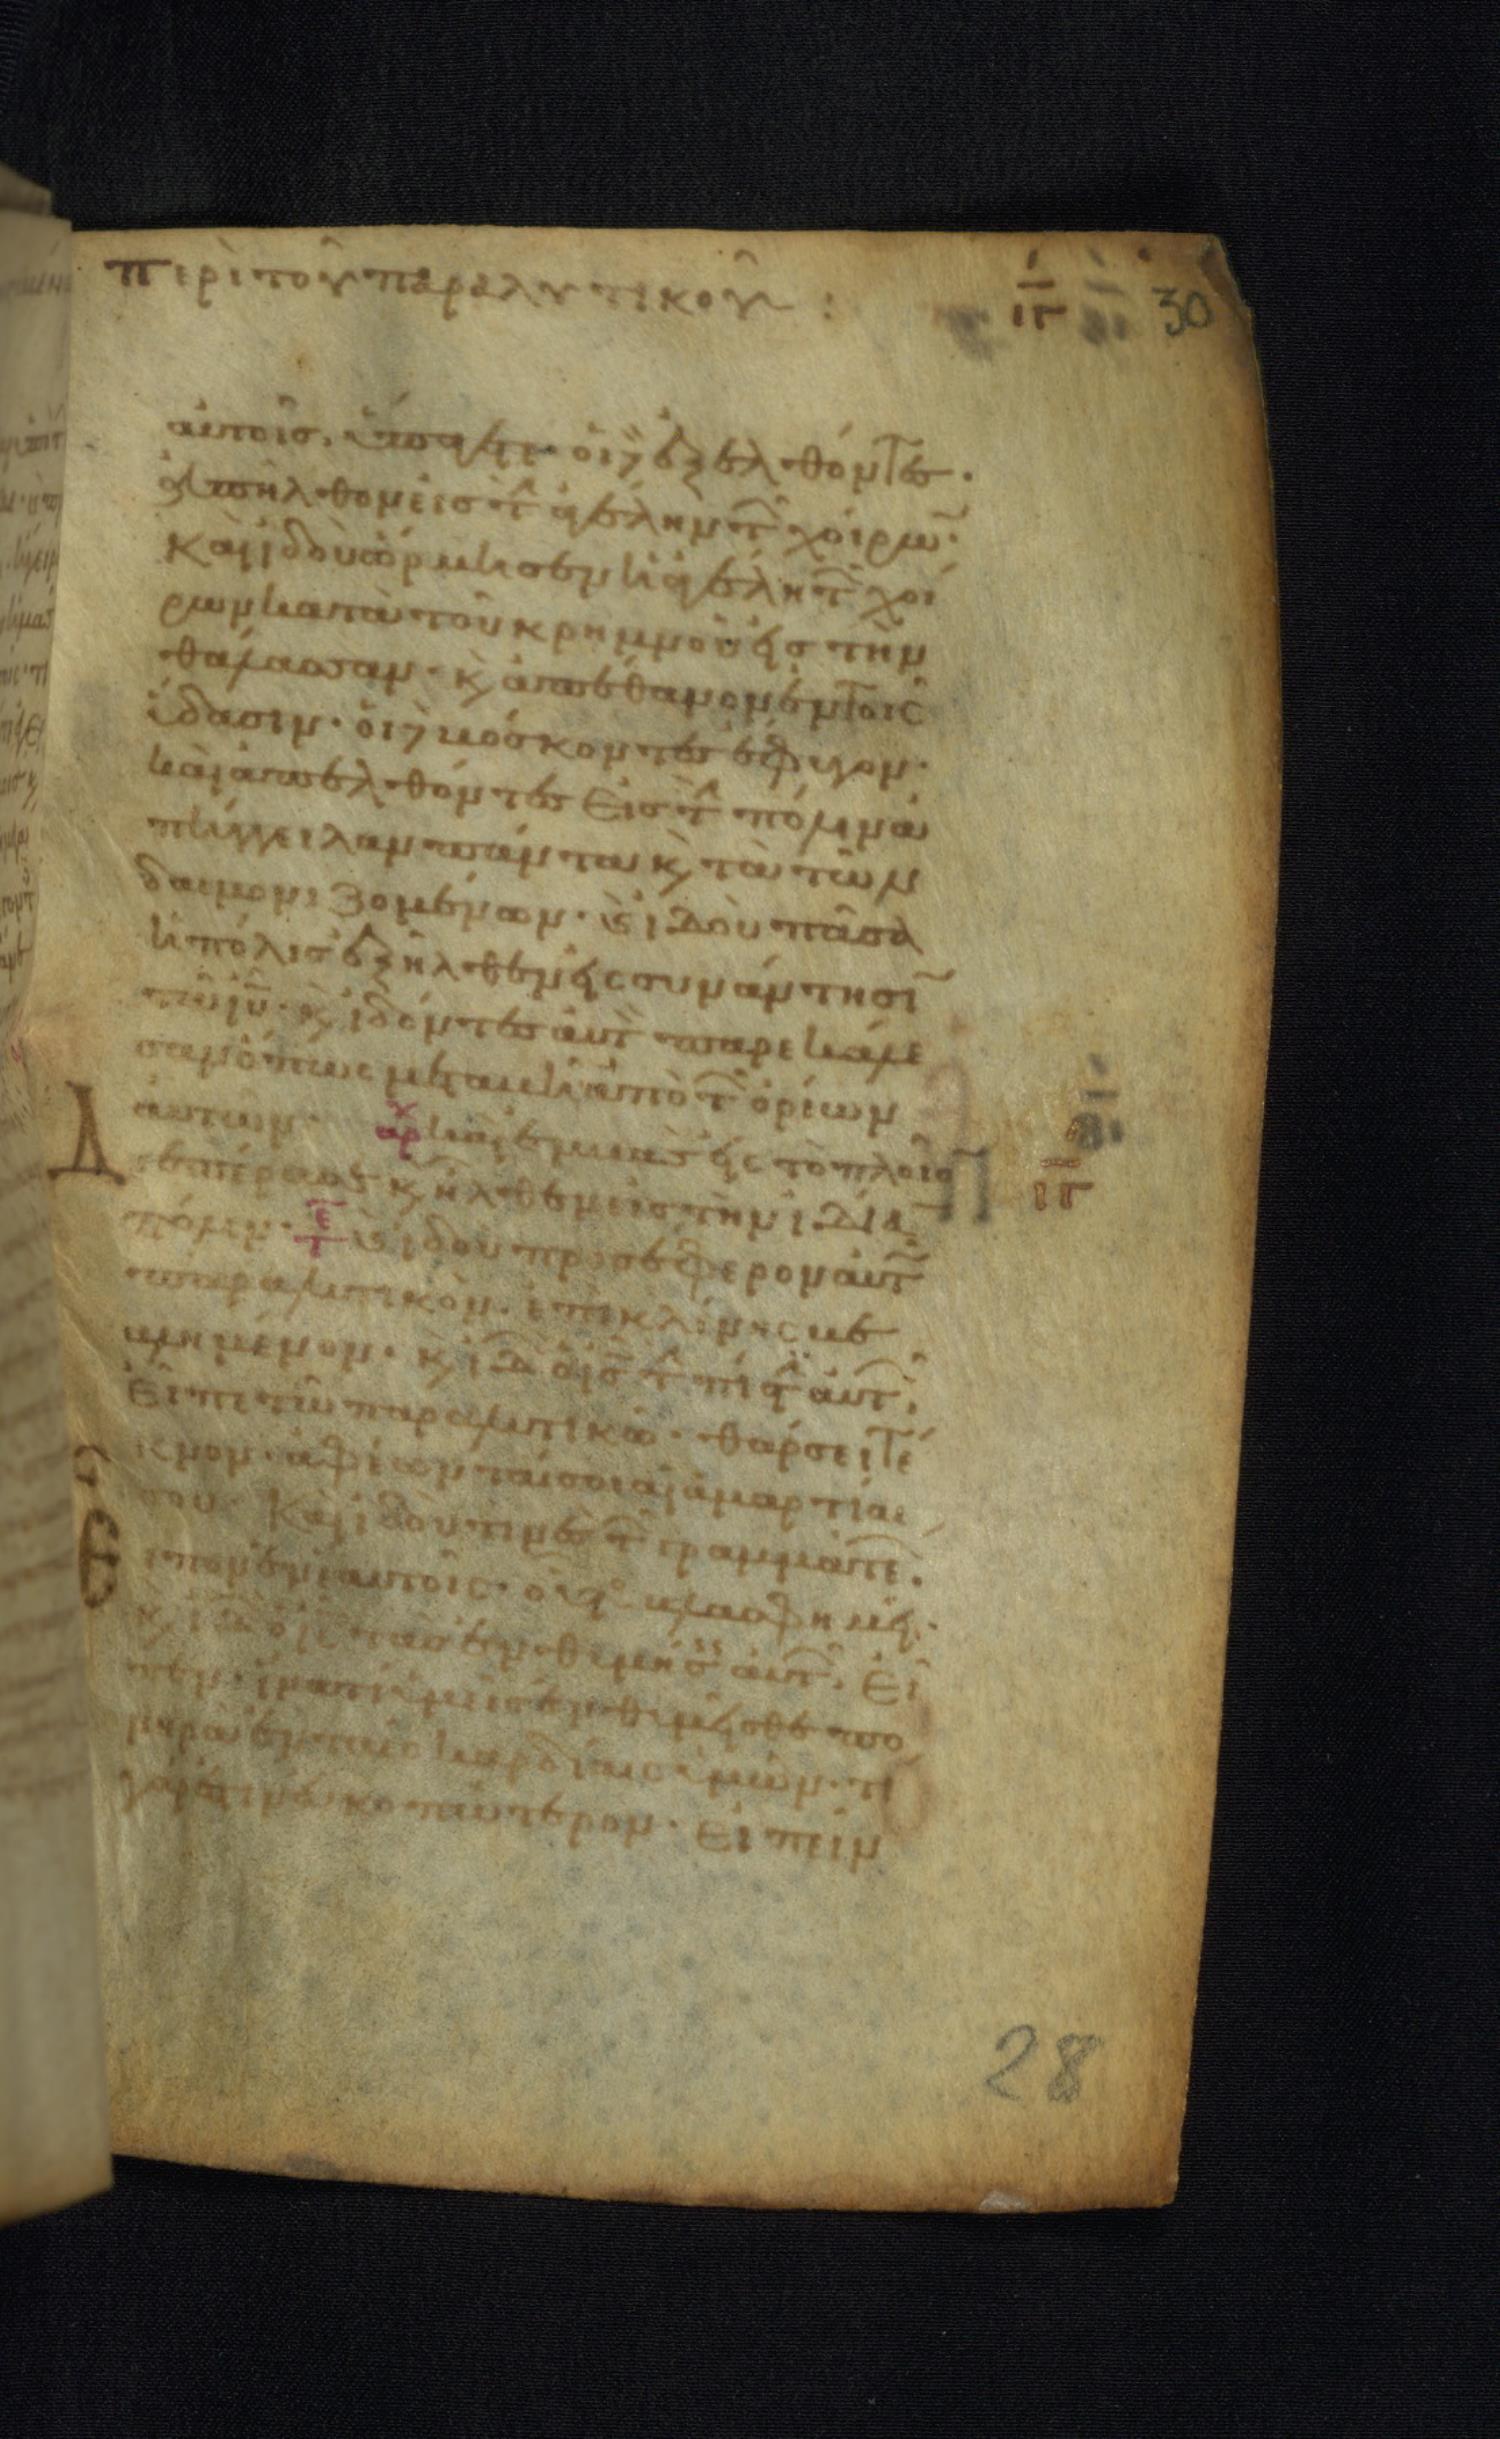 περὶ τοῦ παραλυτικοῦ : ιγ 30
αὐτοῖς. ὑπάγετε· οἱ δὲ ἐξελθόντες·
ἀπῆλθον εἰς τὴν ἀγέλην τῶν χοίρων·
Καὶ ἰδοὺ ὥρμησεν ἡ ἀγέλη τῶν χοί
ρων κατὰ τοῦ κρημνοῦ εἰς τὴν
θάλασσαν· κ ἀπέθανον ἐν τοῖς
ὕδασιν· οἱ δὲ βόσκοντες ἔφυγον·
καὶ ἀπελθόντες εἰς τὴν πόλιν ἀ
πήγγειλαν πάντα κ τὰ τῶν
δαιμονιζομένων· κ ἰδοὺ πᾶσα
ἡ πόλις ἐξῆλθεν εἰς συνάντησιν
τῷ ιυ· κ ἰδόντες αὐτὸν παρεκάλε
σαν ὅπως μεταβῇ ἀπὸ τῶν ὁρίων
αὐτῶν· αρχ καὶ ἐμβὰς εἰς τὸ πλοῖον
Δ
διεπέρασε κ ἦλθεν εἰς τὴν ἰδίαν ιγ
πόλιν· κ ἰδοὺ προσέφερον αὐτῷ
παραλυτικὸν· ἐπὶ κλίνης βε
βλημένον· κ ἰδὼν ὁ ις τὴν πίστιν αὐτῶν·
εἶπε τῷ παραλυτικῷ· θάρσει τέ
κνον· ἀφέωνταί σοι αἱ ἁμαρτίαι
σου· Καὶ ἰδού τινες τῶν γραμματέων·
Ε
εἶπον ἐν ἑαυτοῖς· οὗτος βλασφημεῖ·
κ ἰδὼν ὁ ις τὰς ἐνθυμήσεις αὐτῶν· εἶ
πεν· ἱνατί ὑμεῖς ἐνθυμεῖσθε πο
νηρὰ ἐν ταῖς καρδίαις ὑμῶν· τί
γάρ ἐστιν εὐκοπώτερον· εἰπεῖν
28